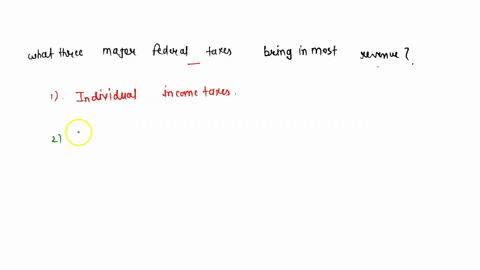 what three major federal taxes bring in most revenue?
1). Individual income taxes.
2)